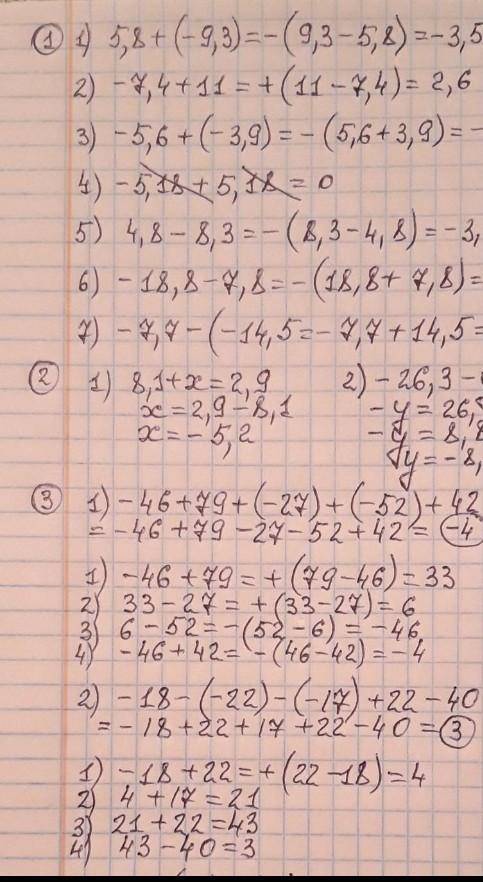 ① 1) 5,8 + (-9,3) = -(9,3 - 5,8) = -3,5
2) -7,4 + 11 = +(11 - 7,4) = 2,6
3) -5,6 + (-3,9) = -(5,6 + 3,9) = -
4) -5,18 + 5,18 = 0
5) 4,8 - 8,3 = -(8,3 - 4,8) = -3,
6) -18,8 - 7,8 = -(18,8 + 7,8) =
7) -7,7 - (-14,5 = -7,7 + 14,5 =
② 1) 8,1 + x = 2,9
x = 2,9 - 8,1
x = -5,2
2) -26,3 -
-y = 26,
-y = 8,8
y = -8,
③ 1) -46 + 79 + (-27) + (-52) + 42
= -46 + 79 - 27 - 52 + 42 = -4
1) -46 + 79 = +(79 - 46) = 33
2) 33 - 27 = +(33 - 27) = 6
3) 6 - 52 = -(52 - 6) = -46
4) -46 + 42 = -(46 - 42) = -4
2) -18 - (-22) - (-17) + 22 - 40
= -18 + 22 + 17 + 22 - 40 = 3
1) -18 + 22 = +(22 - 18) = 4
2) 4 + 17 = 21
3) 21 + 22 = 43
4) 43 - 40 = 3